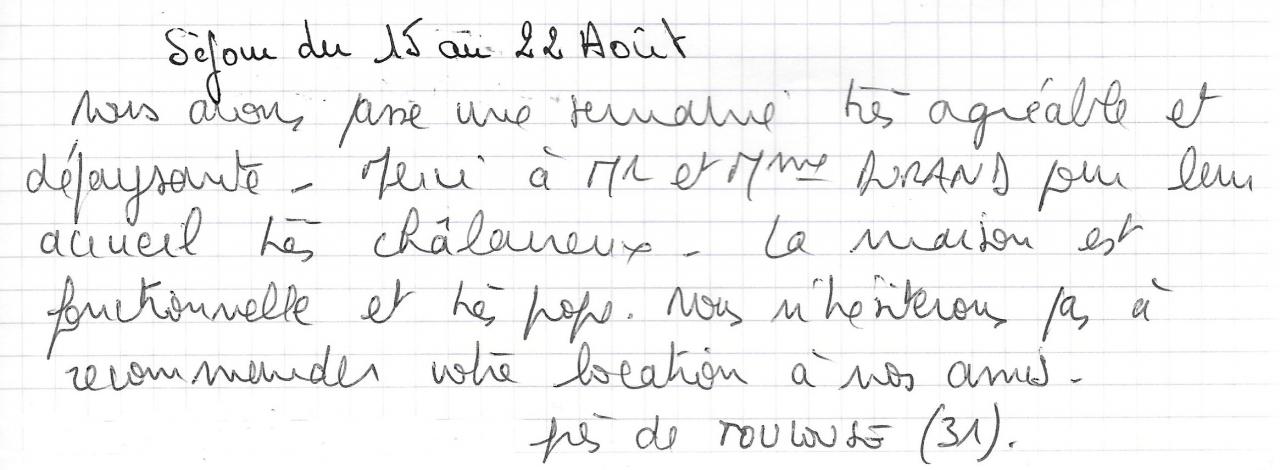 Séjour du 15 au 22 Août
Nous avons passé une semaine très agréable et
dépaysante - Merci à Mr et Mme DURAND pour leur
accueil très châlareux - La maison est
fonctionnelle et très propre. Nous n'hésiterons pas à
recommander votre location à nos amis -
près de TOULOUSE (31).